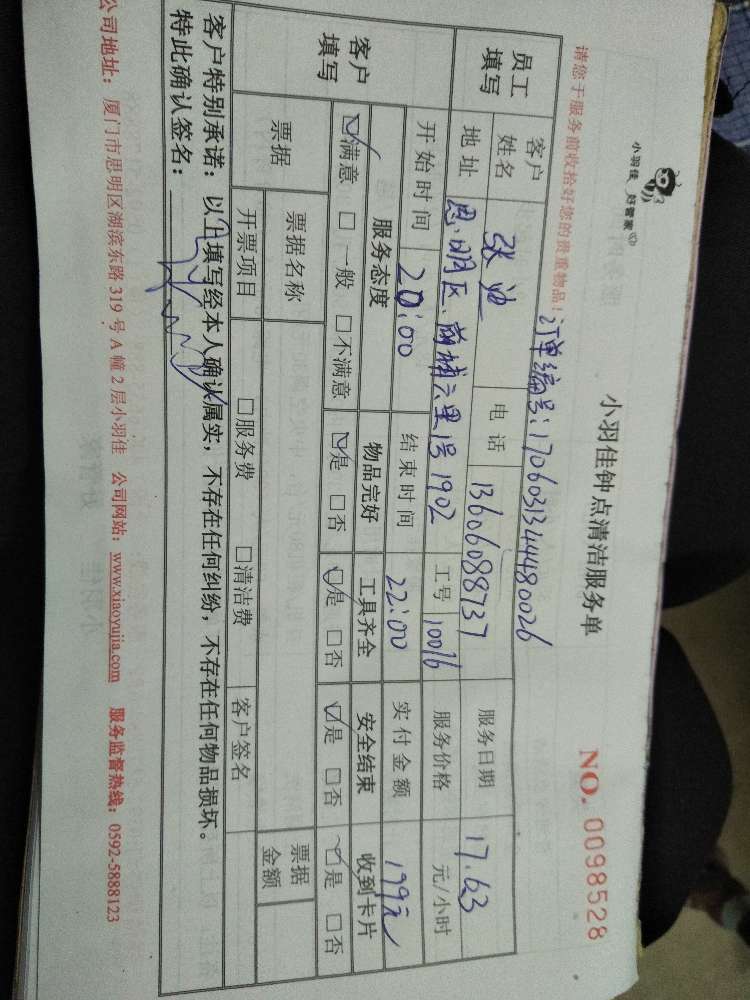 小羽佳 好管家
小羽佳钟点清洁服务单
NO. 0098528
请您于服务前收拾好您的贵重物品！
订单编号：1706031344480026
员工填写 客户姓名 张迪 电话 13606088737 服务日期 17.6.3
地址 思明区、前埔六里 号1902 工号 10016 服务价格 元/小时
开始时间 20:00 结束时间 22:00 实付金额 199元
客户填写 服务态度 物品完好 工具齐全 安全结束 收到卡片
☑满意 □一般 □不满意 ☑是 □否 ☑是 □否 ☑是 □否 ☑是 □否
票据 票据名称 票据金额
开票项目 □服务费 □清洁费 客户签名
客户特别承诺：以上填写经本人确认属实，不存在任何纠纷，不存在任何物品损坏。
特此确认签名：
公司地址：厦门市思明区湖滨东路319号A幢2层小羽佳 公司网站：www.xiaoyujia.com 服务监督热线：0592-5888123